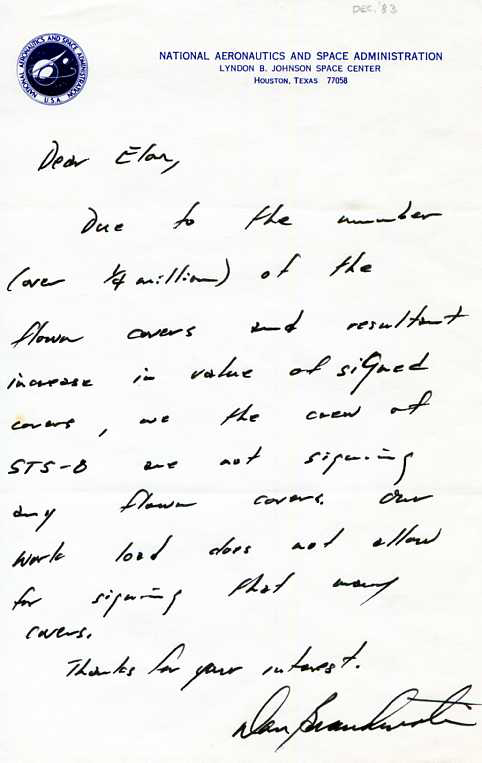 DEC. '83
NATIONAL AERONAUTICS AND SPACE ADMINISTRATION
U.S.A.
NATIONAL AERONAUTICS AND SPACE ADMINISTRATION
LYNDON B. JOHNSON SPACE CENTER
HOUSTON, TEXAS 77058
Dear Elan,
Due to the number
(over 1/4 million) of the
flown covers and resultant
increase in value of signed
covers, we the crew of
STS-8 are not signing
any flown covers. Our
work load does not allow
for signing that many
covers.
Thanks for your interest.
Dan Brandenstein